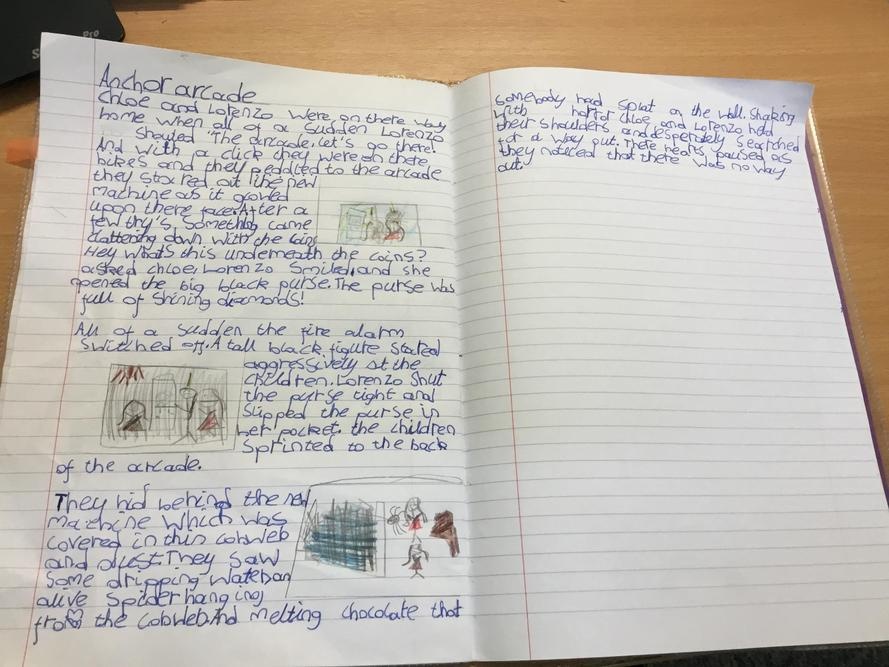 Pro
S
Anchor arcade
Chloe and Lorenzo were on there way
home when all of a sudden Lorenzo
shouted "The arcade. let's go there!
And with a click they were on there
bikes and they peddled to the arcade
they stared at the new
machine as it glowed
upon there face. After a
few try's something came
clattering down with the coins
Hey what's this underneath the coins?
asked chloe. Lorenzo smiled, and she
opened the big black purse. The purse was
full of shining diamonds!
All of a sudden the fire alarm
switched off. A tall black figure stared
aggressively at the
children. Lorenzo shut
the purse tight and
slipped the purse in
her pocket. the children
sprinted to the back
of the arcade.
They hid behind the new
machine which was
covered in thin cobweb
and dust. They saw
some dripping water, an
alive spider hanging
from the cobweb. And melting chocolate that
somebody had spat on the wall. shaking
with horror chloe and Lorenzo held
their shoulders and desperately searched
for a way out. There hearts paused as
they noticed that there was no way
out.